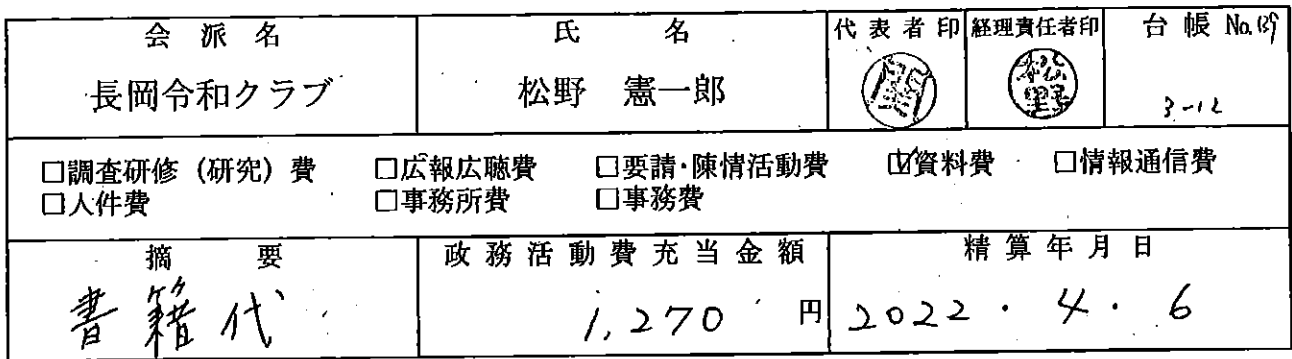 会派名 氏名 代表者印 経理責任者印 台帳 No.139
長岡令和クラブ 松野 憲一郎 関 松野 3-12
□調査研修（研究）費 □広報広聴費 □要請・陳情活動費 ☑資料費 □情報通信費
□人件費 □事務所費 □事務費
摘要 政務活動費充当金額 精算年月日
書籍代 1,270 円 2022・4・6